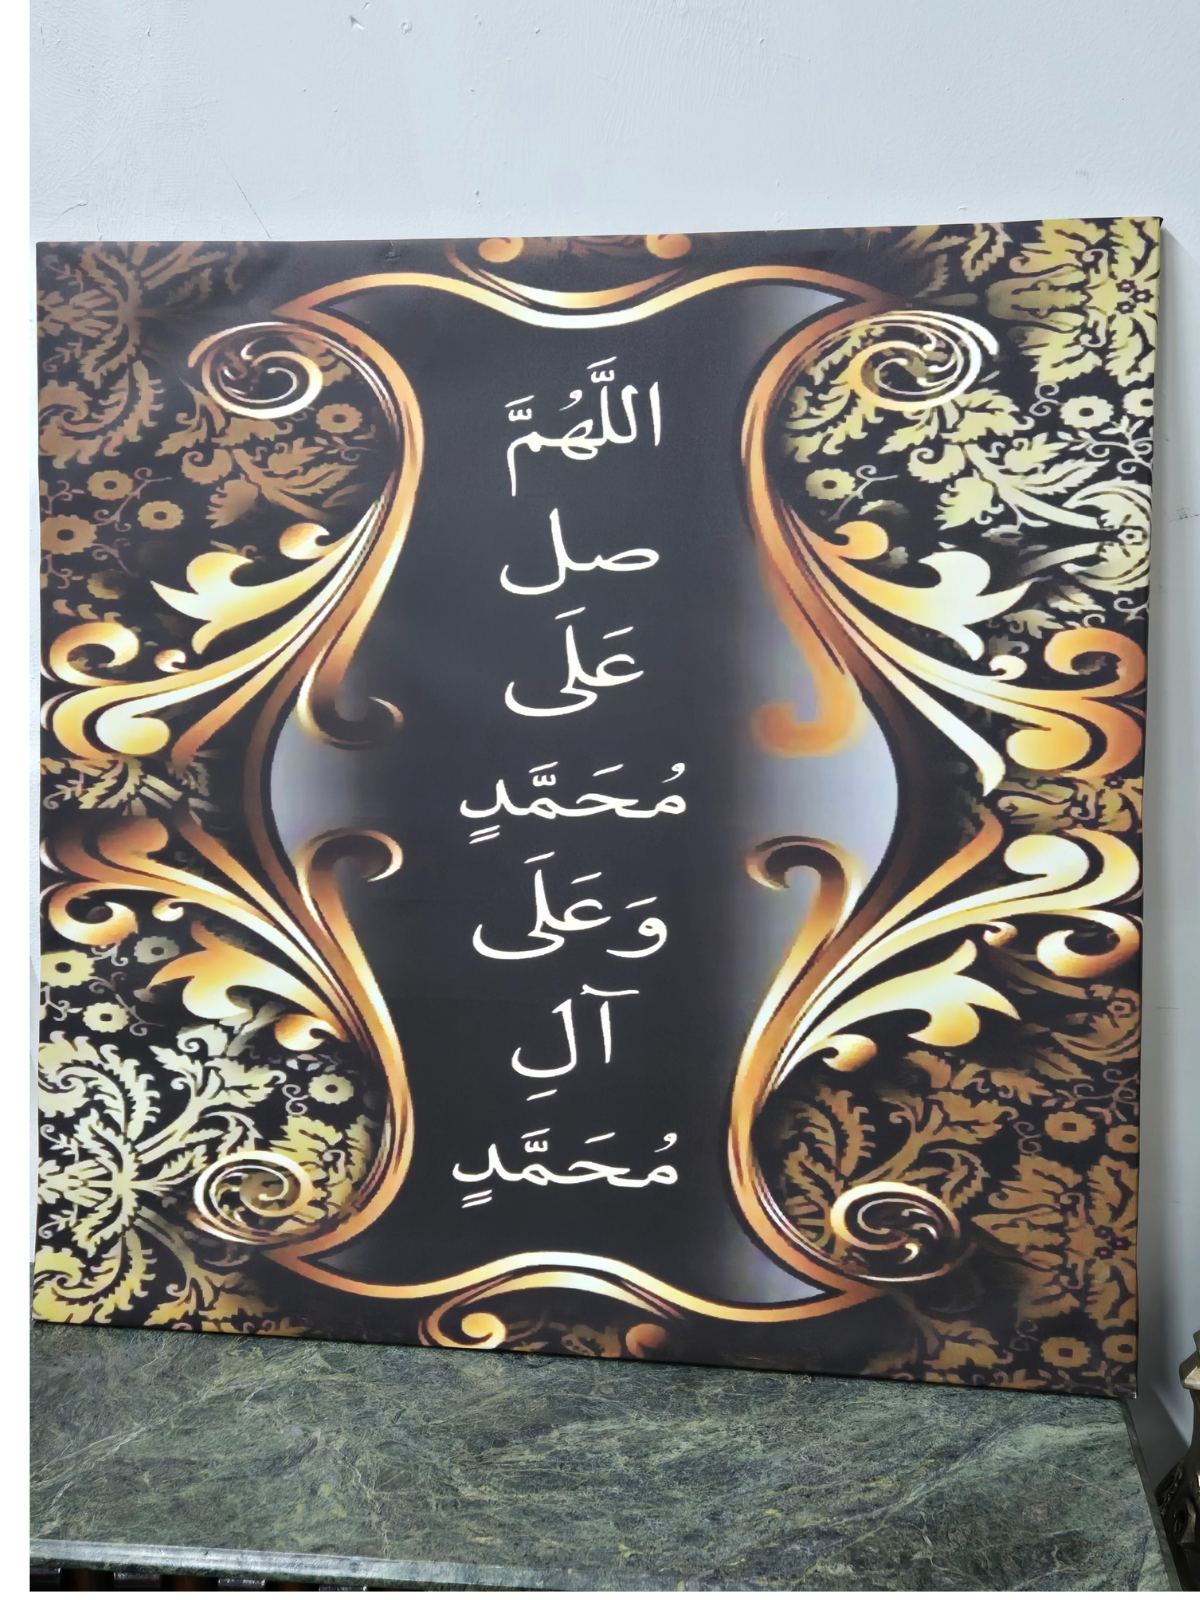 اللَّهُمَّ
صل
عَلَى
مُحَمَّدٍ
وَعَلَى
آلِ
مُحَمَّدٍ